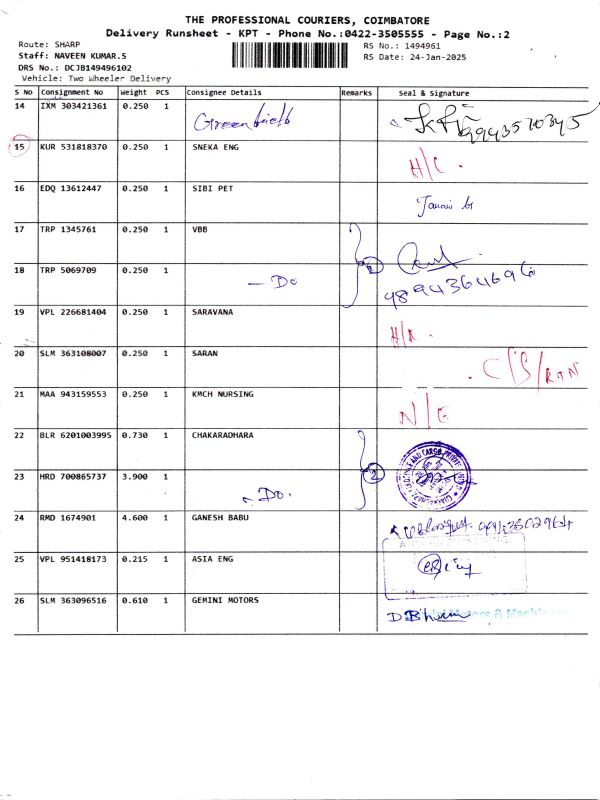 THE PROFESSIONAL COURIERS, COIMBATORE
Delivery Runsheet - KPT - Phone No.:0422-3505555 - Page No.:2
Route: SHARP
RS No.: 1494961
Staff: NAVEEN KUMAR.S
RS Date: 24-Jan-2025
DRS No.: DCJB149496102
Vehicle: Two Wheeler Delivery
S No Consignment No Weight PCS Consignee Details Remarks Seal & Signature
14 IXM 303421361 0.250 1
Greenfield
15 KUR 531818370 0.250 1 SNEKA ENG
H/C.
16 EDQ 13612447 0.250 1 SIBI PET
17 TRP 1345761 0.250 1 VBB
18 TRP 5069709 0.250 1
- Do
9894364696
19 VPL 226681404 0.250 1 SARAVANA
20 SLM 363108007 0.250 1 SARAN
C/S/RTN
21 MAA 943159553 0.250 1 KMCH NURSING
N/E
22 BLR 6201003995 0.730 1 CHAKARADHARA
23 HRD 700865737 3.900 1
2
- Do.
24 RMD 1674901 4.600 1 GANESH BABU
25 VPL 951418173 0.215 1 ASIA ENG
26 SLM 363096516 0.610 1 GEMINI MOTORS